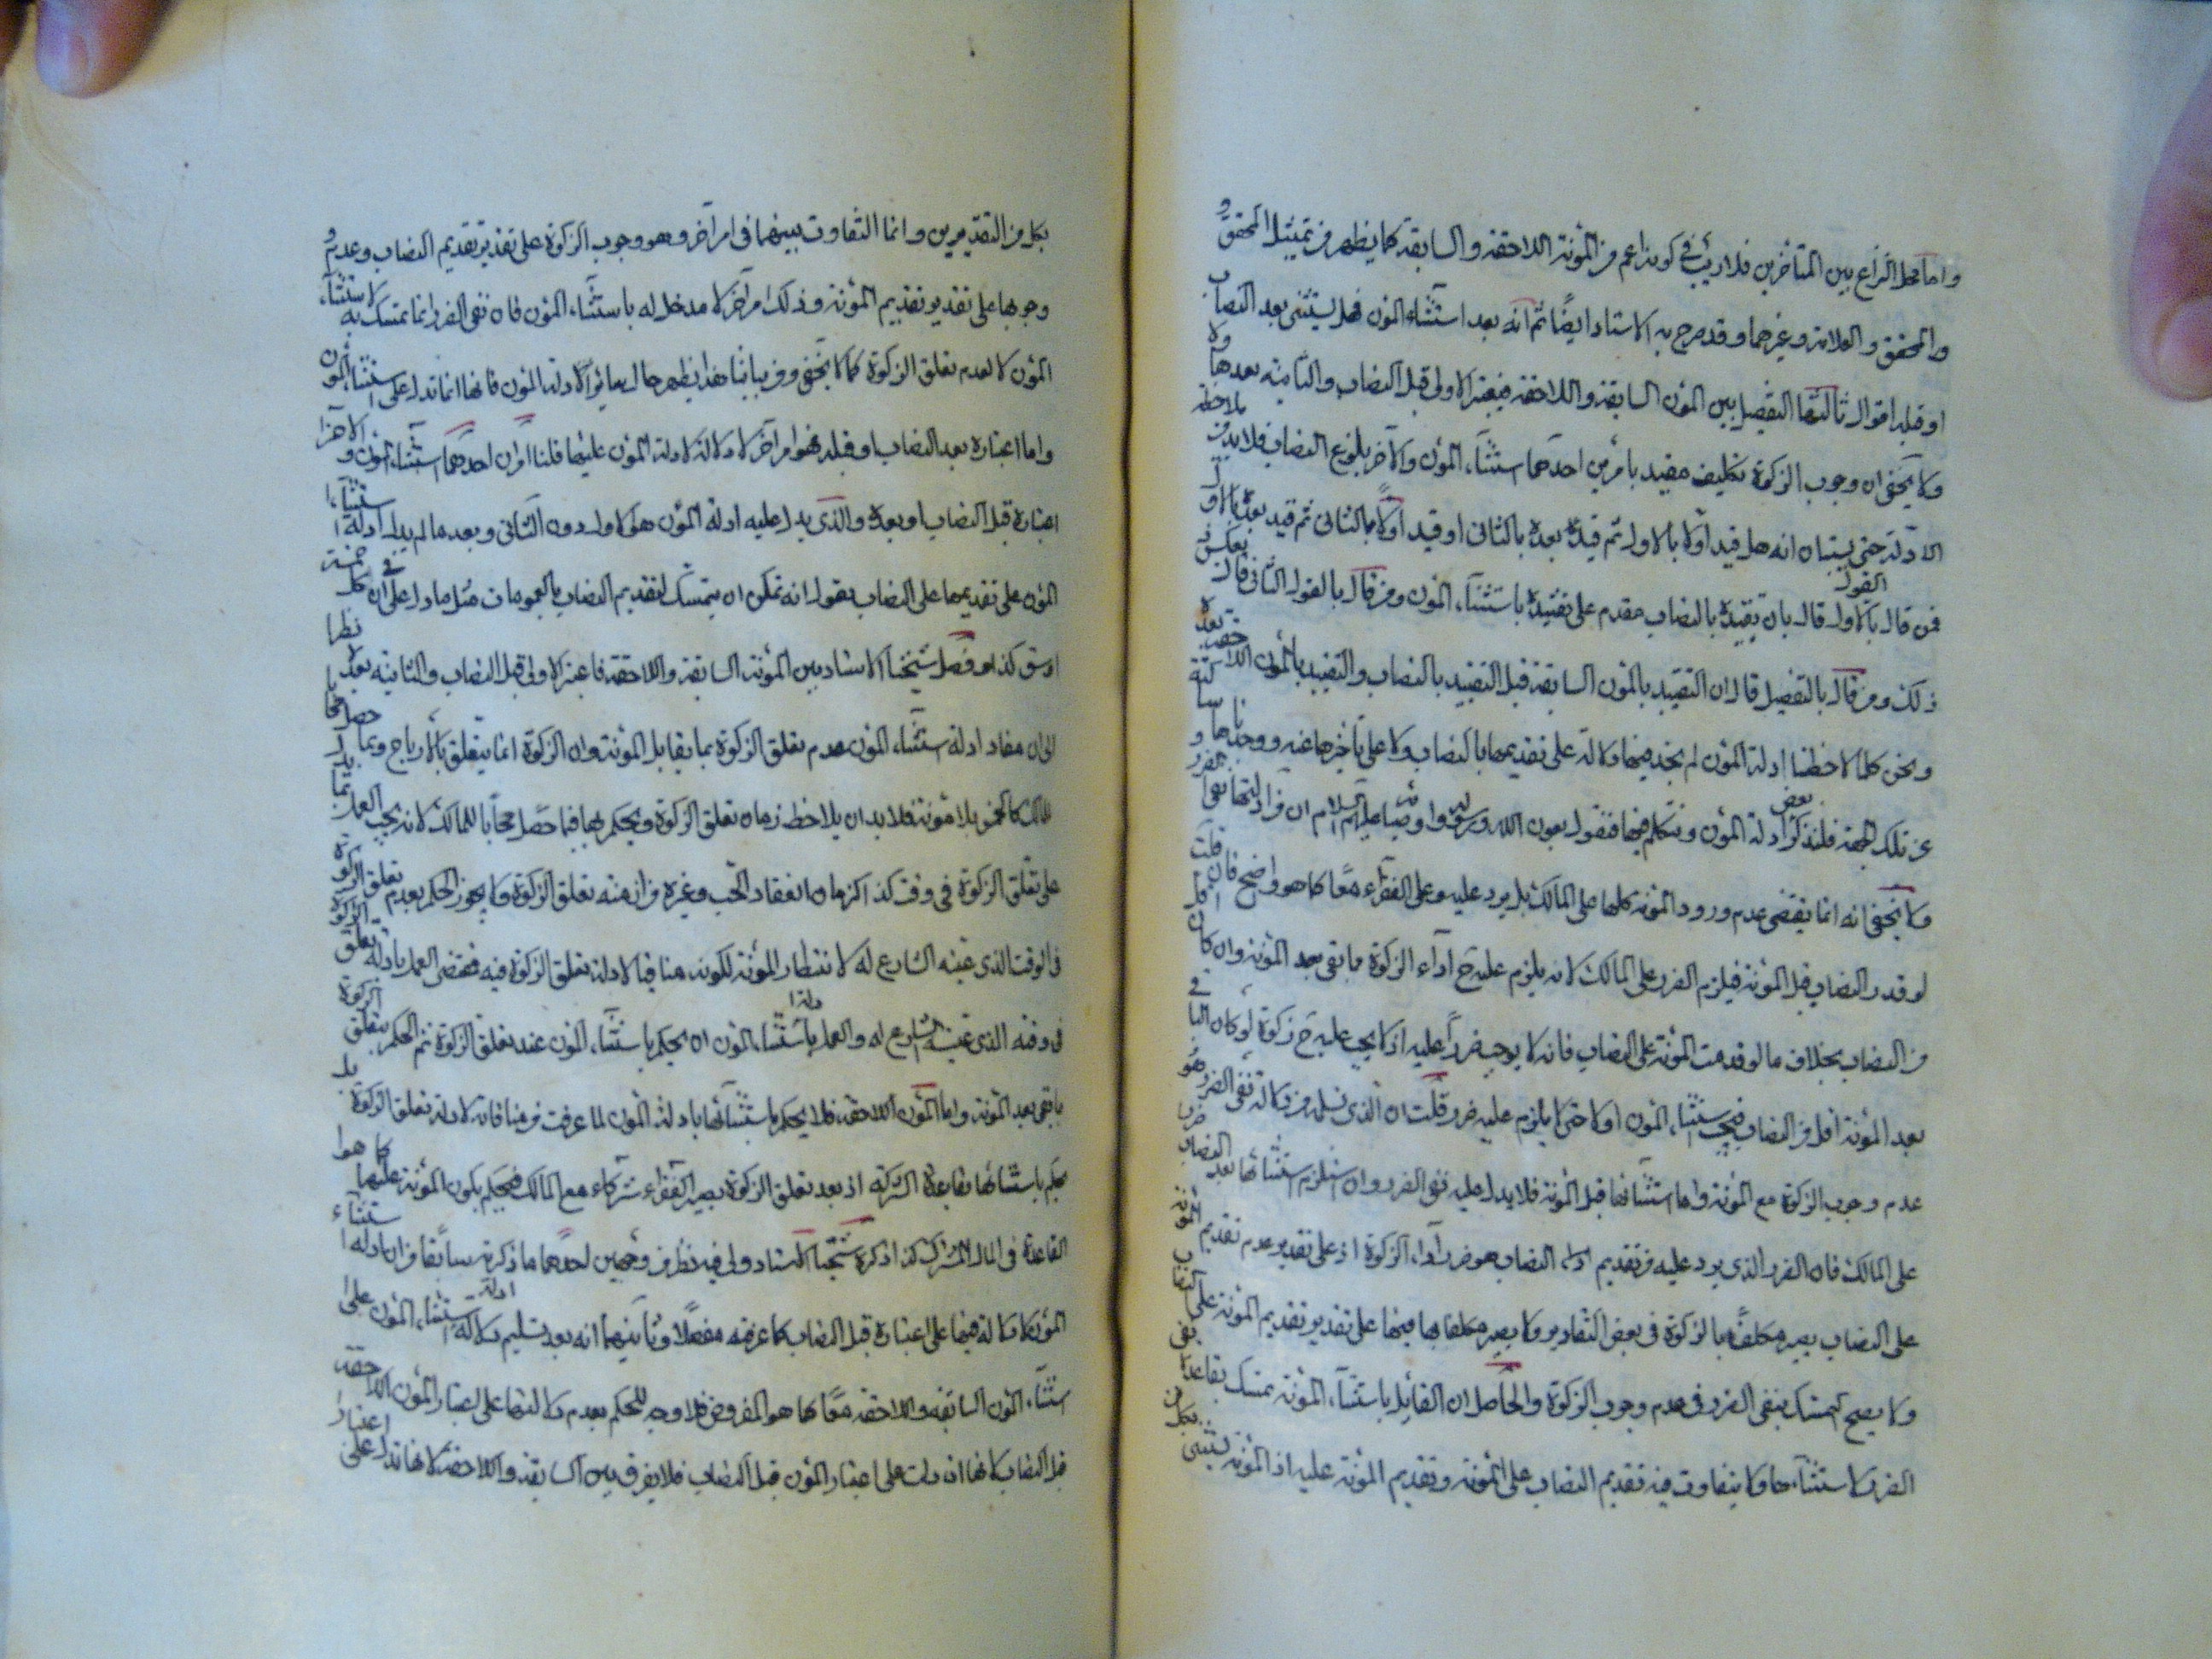 واما محل النزاع بين المتأخرين فلا ريب في كونه اعم من المؤنة اللاحقة والسابقة كما يظهر من تمثيل المحقق و
والمحقق والعلامة وغيرهما وقد صرح به الاستاد ايضًا ثم انه بعد استثناء المؤن فهل يستثنى بعد النصاب
او قبله اقوال ثالثها التفصيل بين المؤن السابقة واللاحقة فيعتبر الاولى قبل النصاب والثانية بعدها ولا
ولا يخفى ان وجوب الزكوة تكليف مقيد بامرين احدهما استثناء المؤن والآخر بلوغ النصاب فلا بد من ملاحظة
الادلة حتى يستبان انه هل قيد اولا بالاول ثم قيده بعده بالثاني او قيد اولًا بالثاني ثم قيد بعده بالاول
فمن قال بالقول الاول قال بان تقييده بالنصاب مقدم على تقييده باستثناء المؤن ومن قال بالقول الثاني قال بعكس
ذلك ومن قال بالتفصيل قال ان التقييد بالمؤن السابقة قبل التقييد بالنصاب والتقييد بالمؤن اللاحقة بعده
ونحن كلما لاحظنا ادلة المؤن لم نجد فيها دلالة على تقديمها بالنصاب ولا على تأخيرها عنه ووجدناها ساكتة
عن تلك الجهة فلنذكر بعض ادلة المؤن ونتكلم فيها فنقول بعون الله ورسوله واوصيائه عليهم السلام ان من ادلتها نفى الضرر و
ولا يخفى انه انما يقتضى عدم ورود المؤنة كلها على المالك بل يرد عليه وعلى الفقراء معًا كما هو واضح فان قلت
لو قدر النصاب قبل المؤنة فيلزم الضرر على المالك لانه يلزم عليه ح اداء الزكوة ما بقى بعد المؤنة وان كان اقل
من النصاب بخلاف ما لو قدمت المؤنة على النصاب فانه لا يوجب ضررًا عليه اذ لا يجب عليه ح زكوة لو كان الباقى
بعد المؤنة اقل من النصاب فيجب استثناء المؤن اولا حتى لا يلزم عليه ضرر قلت ان الذى نسلم من دلالة نفى الضرر هو
عدم وجوب الزكوة مع المؤنة واما استثنائها قبل المؤنة فلا يدل عليه نفى الضرر وان استلزم استثنائها بعد النصاب ضررا
على المالك فان الضرر الذى يرد عليه من تقديم النصاب هو ضرر اداء الزكوة اذ على تقدير عدم تقديم المؤنة
على النصاب يصير مكلفًا بالزكوة فى بعض التقادير ولا يصير مكلفا بها فيها على تقدير تقديم المؤنة على النصاب
ولا يصح التمسك بنفى الضرر فى عدم وجوب الزكوة والحاصل ان القائل باستثناء المؤنة يتمسك بقاعدة نفى
الضرر لاستثنائها ولا يتفاوت فيه تقديم النصاب على المؤنة وتقديم المؤنة عليه اذ المؤنة يستثنى بكل من
بكل من التقديرين وانما التفاوت بينهما فى امر آخر وهو وجوب الزكوة على تقدير تقديم النصاب وعدم و
وجوبها على تقدير تقديم المؤنة وذلك امر آخر لا مدخل له باستثناء المؤن فان نفى الضرر انما يتمسك به لاستثناء
المؤن لا لعدم تعلق الزكوة كما لا يخفى ومن بياننا هذا يظهر حال سائر ادلة المؤن فانها انما تدل على استثناء المؤن
واما اعتباره بعد النصاب او قبله فهو امر آخر لا دلالة لادلة المؤن عليها فلنا امران احدهما استثناء المؤن و الآخر
اعتباره قبل النصاب او بعده والذى يدل عليه ادلة المؤن هو الاول دون الثانى وبعد ما لم يدل ادلة استثناء
المؤن على تقديمها على النصاب نقول انه تمكن ان يتمسك لتقديم النصاب بالعمومات مثل ما دل على ان فى كل خمسة
اوسق كذا وفصل شيخنا الاستاد بين المؤنة السابقة واللاحقة فاعتبر الاولى قبل النصاب والثانية بعده نظرا
الى ان مفاد ادلة استثناء المؤن عدم تعلق الزكوة بما يقابل المؤنة وان الزكوة انما يتعلق بالارباح وبما حصل مجانا
على تعلق الزكوة فى وقت كذا كزمان انعقاد الحب وغيره من ازمنة تعلق الزكوة ولا يجوز الحكم بعدم تعلق الزكوة
فى الوقت الذى عينه الشارع له لانتظار المؤنة لكونه منافيا لادلة تعلق الزكوة فيه فمقتضى العمل بادلة تعلق الزكوة
فى وقته الذى عينه الشارع له والعمل بادلة استثناء المؤن ان يحكم باستثناء المؤن عند تعلق الزكوة ثم الحكم بتعلق الزكوة
بما بقى بعد المؤنة واما المؤن اللاحقة فلا يحكم باستثنائها بادلة المؤن لما عرفت من منافاته لادلة تعلق الزكوة بل
يحكم باستثنائها بقاعدة الشركة اذ بعد تعلق الزكوة يصير الفقراء شركاء مع المالك فيحكم بكون المؤنة عليهما كما هو
القاعدة فى المال المشترك كذا ذكره شيخنا الاستاد ولى فيه نظر من وجهين احدهما ما ذكرته سابقا من ان ادلة استثناء
المؤن لا دلالة فيها على اعتباره قبل النصاب كما عرفته مفصلًا وثانيهما انه بعد تسليم دلالة ادلة استثناء المؤن على
استثناء المؤن السابقة واللاحقة معًا كما هو المفروض فلا وجه للحكم بعدم دلالتها على اعتبار المؤن اللاحقة
قبل النصاب لانها ان دلت على اعتبار المؤن قبل النصاب فلا يفرق بين السابقة واللاحقة لانها تدل على اعتبار